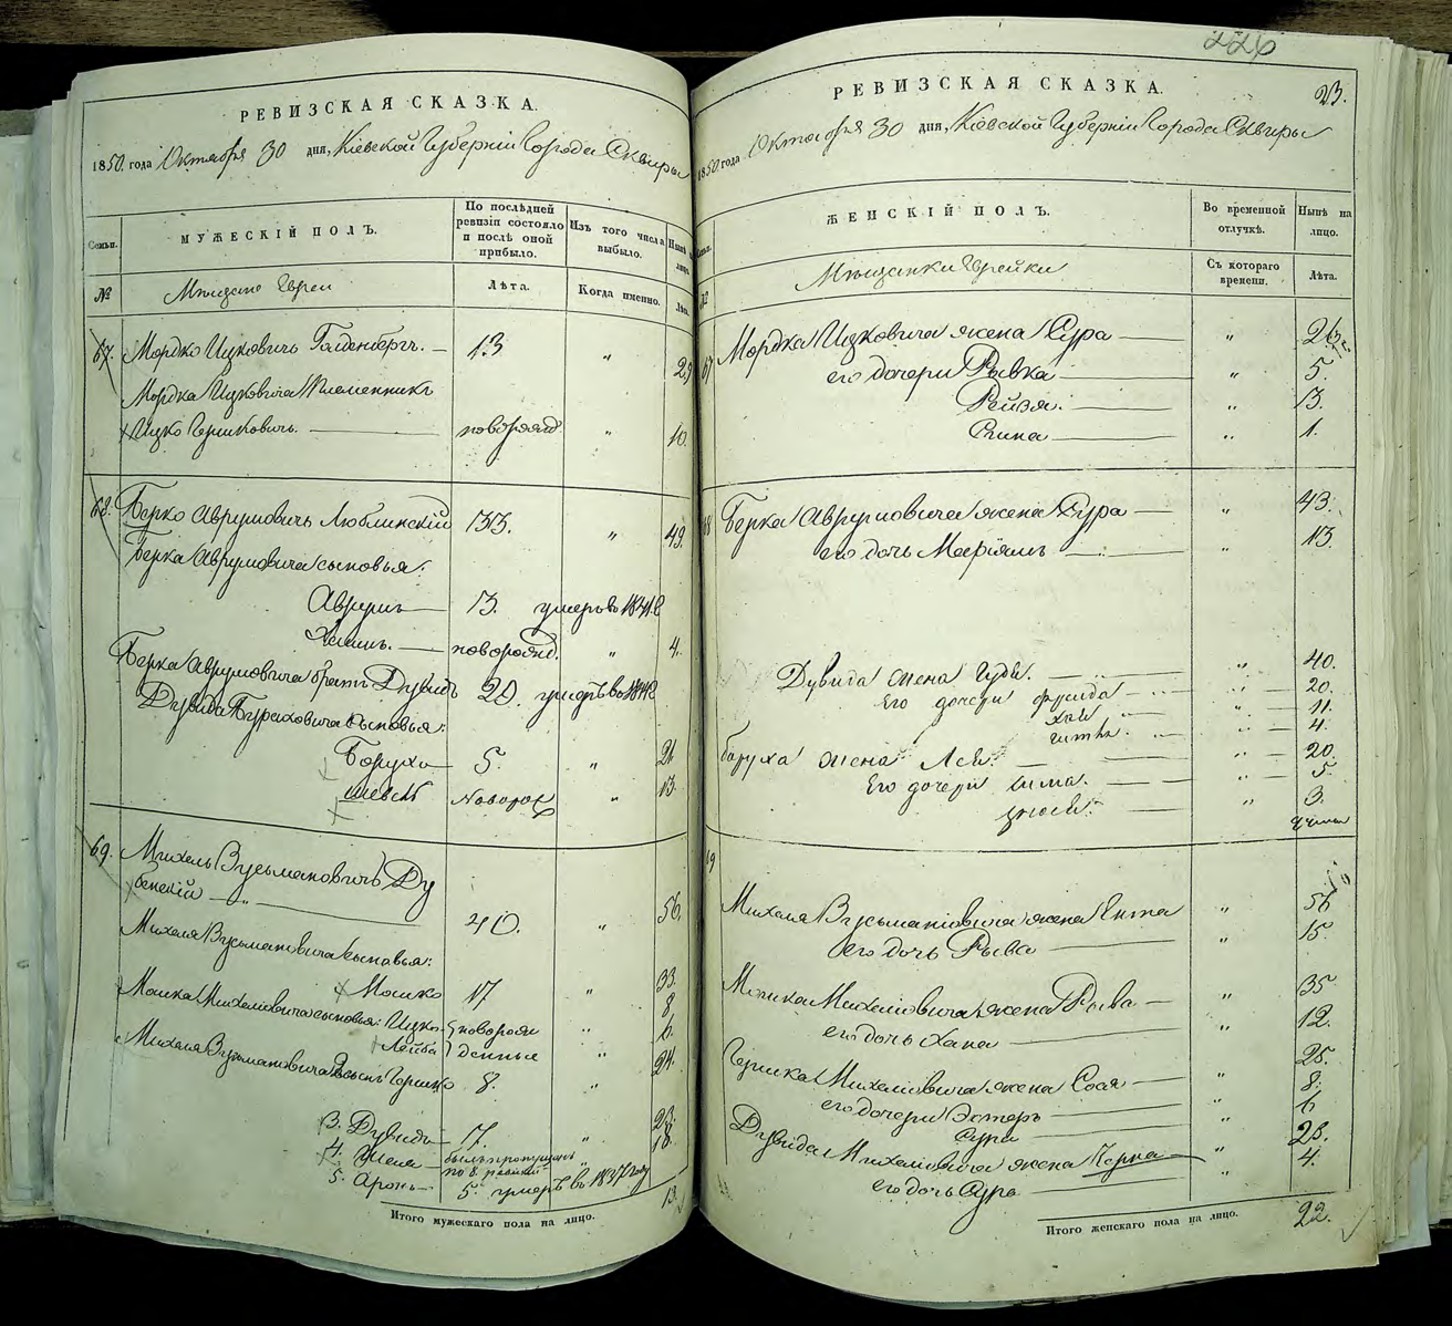 226
РЕВИЗСКАЯ СКАЗКА.
1850. года Октября 30 дня, Кіевской Губерніи Города Сквиры
Семьи.
МУЖЕСКІЙ ПОЛЪ.
По послѣдней ревизіи состояло и послѣ оной прибыло.
Изъ того числа выбыло.
Нынѣ на лицо.
№
Мещане Евреи
Лѣта.
Когда именно.
Лѣта.
67. Мордко Ицковичь Голденбергъ. — 13 " 29
Мордка Ицковича племенникъ
Ицко Гершковичь. — новорожд. " 10.
68. Берко Аврумовичь Люблинскій 33. " 49.
Берка Аврумовича сыновья:
Аврумъ — 13. умеръ въ 1841 г
Хаимъ. — новорожд. " 4.
Берка Аврумовича братъ Дувидъ 20. умеръ въ
Дувида сыновья:
Борухъ — 5. " 21
шевель Новорож " 13.
69. Михель Вусьмановичь Ду
бенскій — 40. " 56.
Михеля Вусьмановича сыновья:
Мошко 17 " 33.
Мошка Михелювича сыновья: Ицко новорож " 8
Лейба денные " 6.
Михеля Вусьмановича 2 сынъ Гершко 8. " 24.
3. Дувидъ — 7. " 23.
4. Шая — былъ пропущенъ по 8. ревизіи " 18.
5. Аронъ — 5. умеръ въ 1837 году
Итого мужескаго пола на лицо. 13.
РЕВИЗСКАЯ СКАЗКА.
23.
1850 года Октября 30 дня, Кіевской Губерніи Города Сквиры
Семьи.
ЖЕНСКІЙ ПОЛЪ.
Во временной отлучкѣ.
Нынѣ на лицо.
№
Мещанки Еврейки
Съ котораго времени.
Лѣта.
67 Мордка Ицковича жена Сура — " 26
его дочери Рывка — " 5.
Рейзя. — " 3.
— " 1.
68 Берка Аврумовича жена Сура — " 43.
его дочь Маріямъ — " 13.
Дувида жена — " 40.
Его дочери фрейда — " — 20.
хая " — 11.
" — 4.
боруха жена Лея. — " — 20.
Его дочери — " — 5.
— " 3.
69
Михеля Вусьмановича жена Ента " 56
его дочь Рыва — " 15.
Мошка Михелювича жена Рыва — " 35
его дочь Хана — " 12.
Гершка Михелювича жена Сося — " 25.
его дочери Эстеръ — " 8.
Сура — " 6
Дувида Михелювича жена Черна — " 23.
его дочь Сура — " 4.
Итого женскаго пола на лицо. 22.